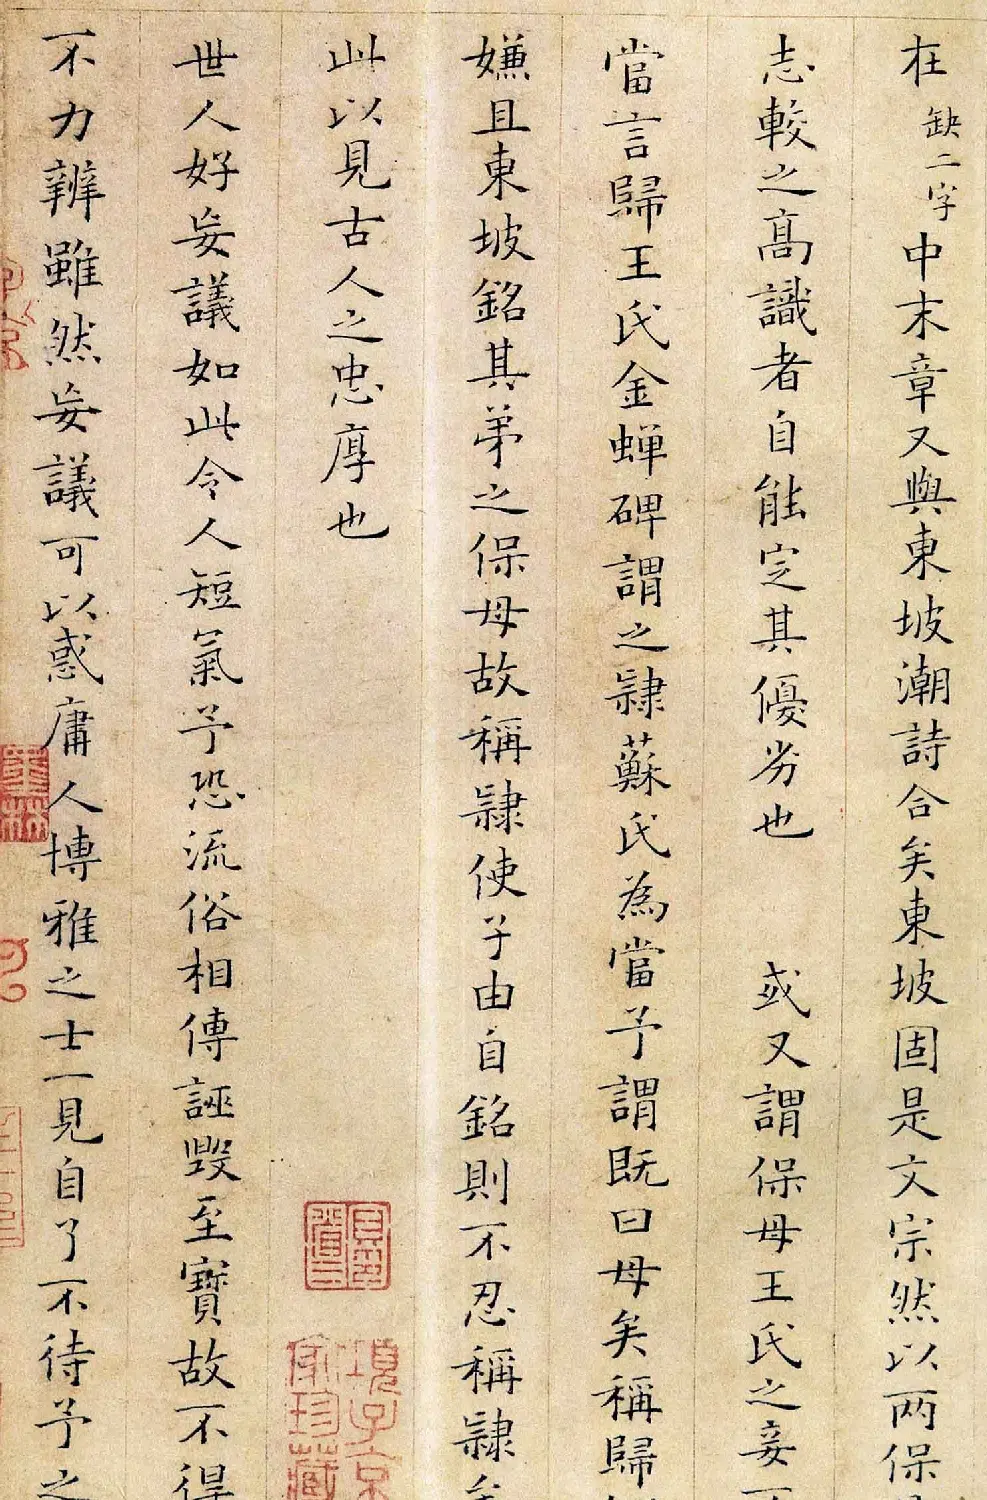 在缺二字中末章又與東坡潮詩合矣東坡固是文宗然以两保
志較之髙識者自能定其優劣也 或又謂保母王氏之妾
當言歸王氏金蝉碑謂之隷蘇氏為當予謂既曰母矣稱歸
嫌且東坡銘其弟之保母故稱隷使子由自銘則不忍稱隷矣
此以見古人之忠厚也
世人好妄議如此令人短氣予恐流俗相傳誣毁至寳故不得
不力辨雖然妄議可以惑庸人博雅之士一見自了不待予之
項子京
珍藏